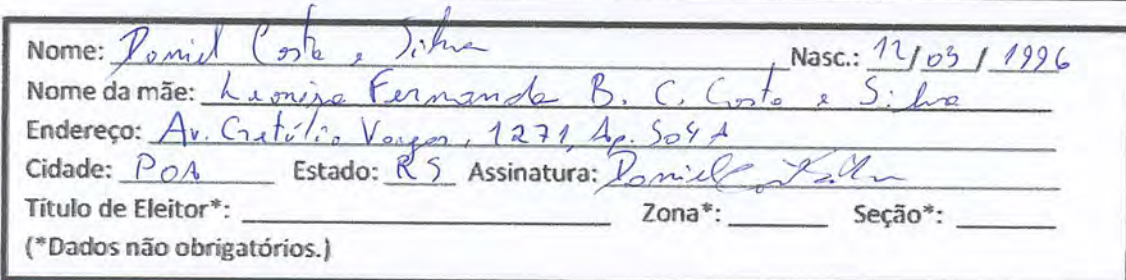 Nome: Daniel Costa e Silva Nasc.: 12/03/1996
Nome da mãe: Fernanda B. C. Costa e Silva
Endereço: Av. Getúlio Vargas, 1271, Ap. 504 A
Cidade: POA Estado: RS Assinatura: Daniel
Título de Eleitor*: Zona*: Seção*:
(*Dados não obrigatórios.)